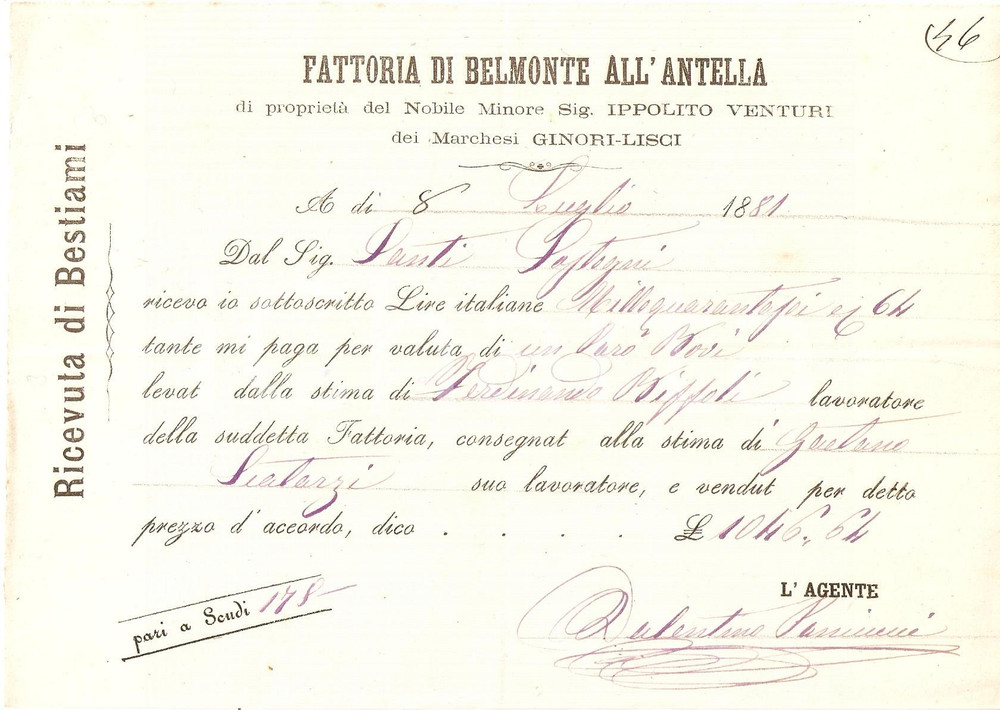 46
FATTORIA DI BELMONTE ALL' ANTELLA
di proprietà del Nobile Minore Sig. IPPOLITO VENTURI
dei Marchesi GINORI-LISCI
Ricevuta di Bestiami
A di 8 Luglio 1881
Dal Sig. Santi
ricevo io sottoscritto Lire italiane Millequarantasei e 64
tante mi paga per valuta di un Paro Bovi
levat dalla stima di Ferdinando Biffoli lavoratore
della suddetta Fattoria, consegnat alla stima di Gaetano
Scalazzi suo lavoratore, e vendut per detto
prezzo d' accordo, dico . . . . . £ 1046,, 64
L' AGENTE
pari a Scudi 178
Valentino